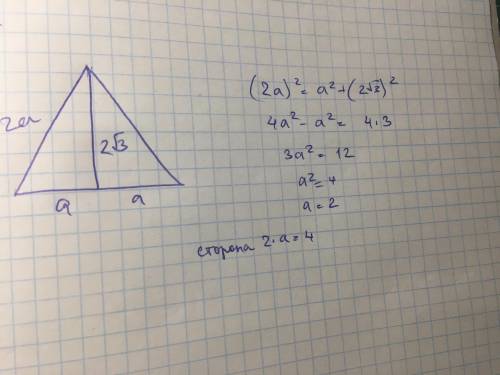 2a
2√3
a
a
(2a)² = a² + (2√3)²
4a² - a² = 4·3
3a² = 12
a² = 4
a = 2
сторона 2·a = 4